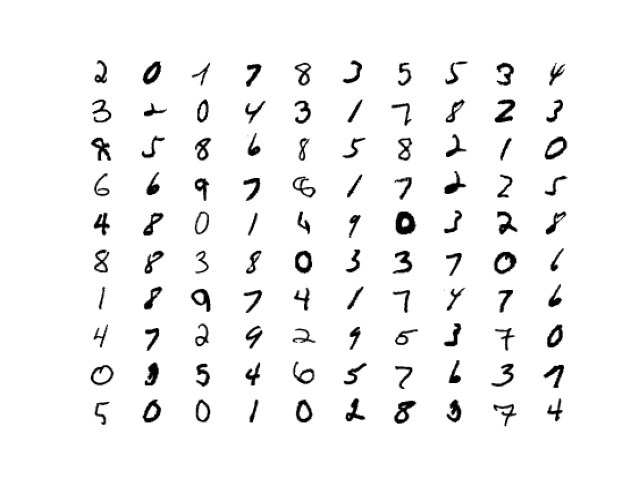 2 0 1 7 8 3 5 5 3 4
3 2 0 4 3 1 7 8 2 3
8 5 8 6 8 5 8 2 1 0
6 6 9 7 8 1 7 2 2 5
4 8 0 1 4 9 0 3 2 8
8 8 3 8 0 3 3 7 0 6
1 8 9 7 4 1 7 4 7 6
4 7 2 9 2 9 5 3 7 0
0 3 5 4 6 5 7 6 3 7
5 0 0 1 0 2 8 3 7 4